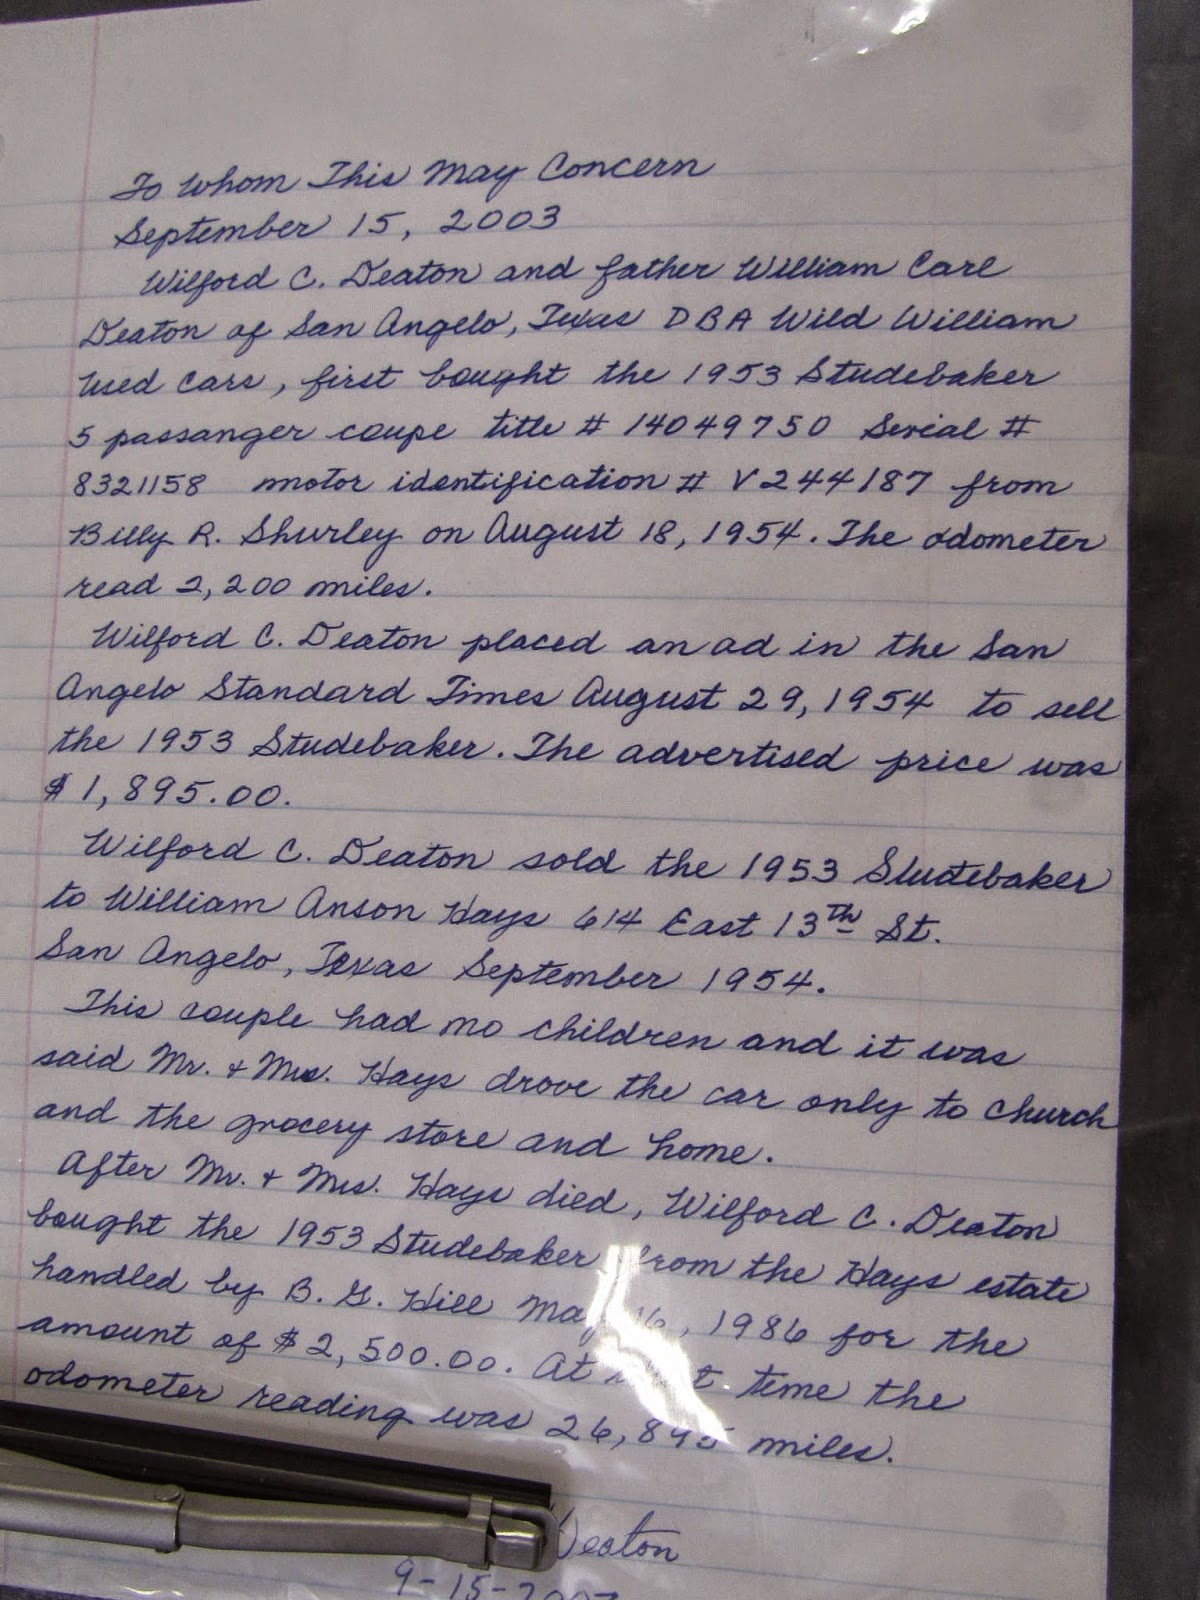 To Whom This May Concern
September 15, 2003
Wilford C. Deaton and father William Carl
Deaton of San Angelo, Texas DBA Wild William
Used Cars, first bought the 1953 Studebaker
5 passanger coupe title # 14049750 Serial #
8321158 motor identification # V244187 from
Billy R. Shurley on August 18, 1954. The odometer
read 2,200 miles.
Wilford C. Deaton placed an ad in the San
Angelo Standard Times August 29, 1954 to sell
the 1953 Studebaker. The advertised price was
$1,895.00.
Wilford C. Deaton sold the 1953 Studebaker
to William Anson Hays 614 East 13th St.
San Angelo, Texas September 1954.
This couple had no children and it was
said Mr. & Mrs. Hays drove the car only to church
and the grocery store and home.
After Mr. & Mrs. Hays died, Wilford C. Deaton
bought the 1953 Studebaker from the Hays estate
handled by B. G. Hill May 16, 1986 for the
amount of $2,500.00. At time the
odometer reading was 26,895 miles.
Deaton
9-15-2003